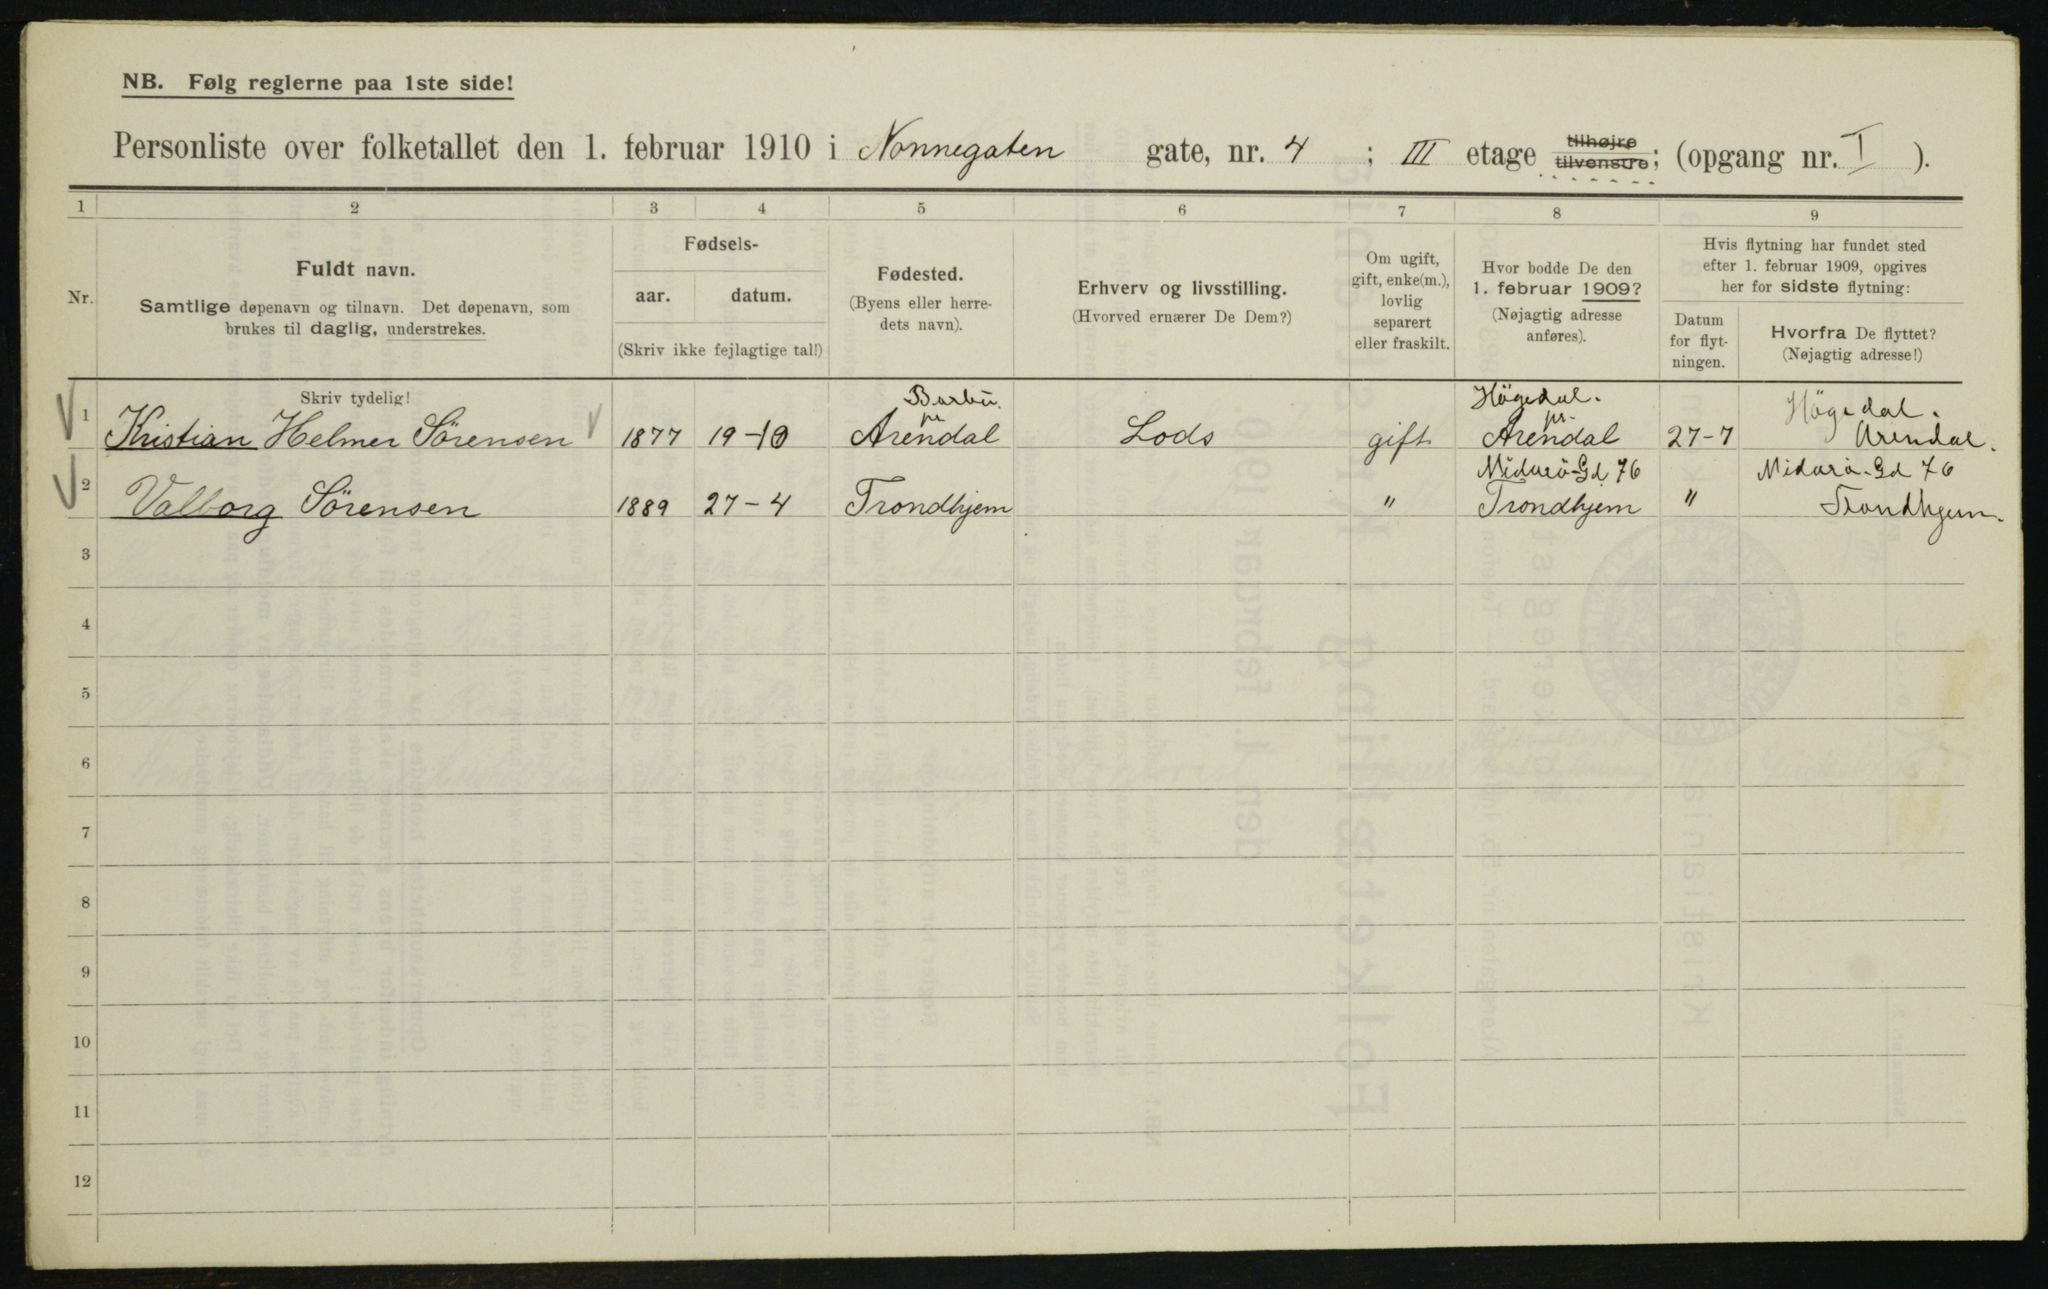 NB. Følg reglerne paa 1ste side!
Personliste over folketallet den 1. februar 1910 i Nonnegaten gate, nr. 4 ; III etage tilhøjre tilvenstre; (opgang nr. I ).
1 2 3 4 5 6 7 8 9
Nr.
Fuldt navn.
Samtlige døpenavn og tilnavn. Det døpenavn, som
brukes til daglig, understrekes.
Fødsels-
aar. datum.
(Skriv ikke fejlagtige tal!)
Fødested.
(Byens eller herre-
dets navn).
Erhverv og livsstilling.
(Hvorved ernærer De Dem?)
Om ugift,
gift, enke(m.),
lovlig
separert
eller fraskilt.
Hvor bodde De den
1. februar 1909?
(Nøjagtig adresse
anføres).
Hvis flytning har fundet sted
efter 1. februar 1909, opgives
her for sidste flytning:
Datum
for flyt-
ningen.
Hvorfra De flyttet?
(Nøjagtig adresse!)
Skriv tydelig!
Barbu. Högedal. Högedal.
pr. pr.
1 Kristian Helmer Sörensen 1877 19-10 Arendal Lods gift Arendal 27-7 Arendal.
Midarö-Gd. 76 Midarö-Gd 76
2 Valborg Sörensen 1889 27-4 Trondhjem " Trondhjem " Trondhjem.
3
4
5
6
7
8
9
10
11
12